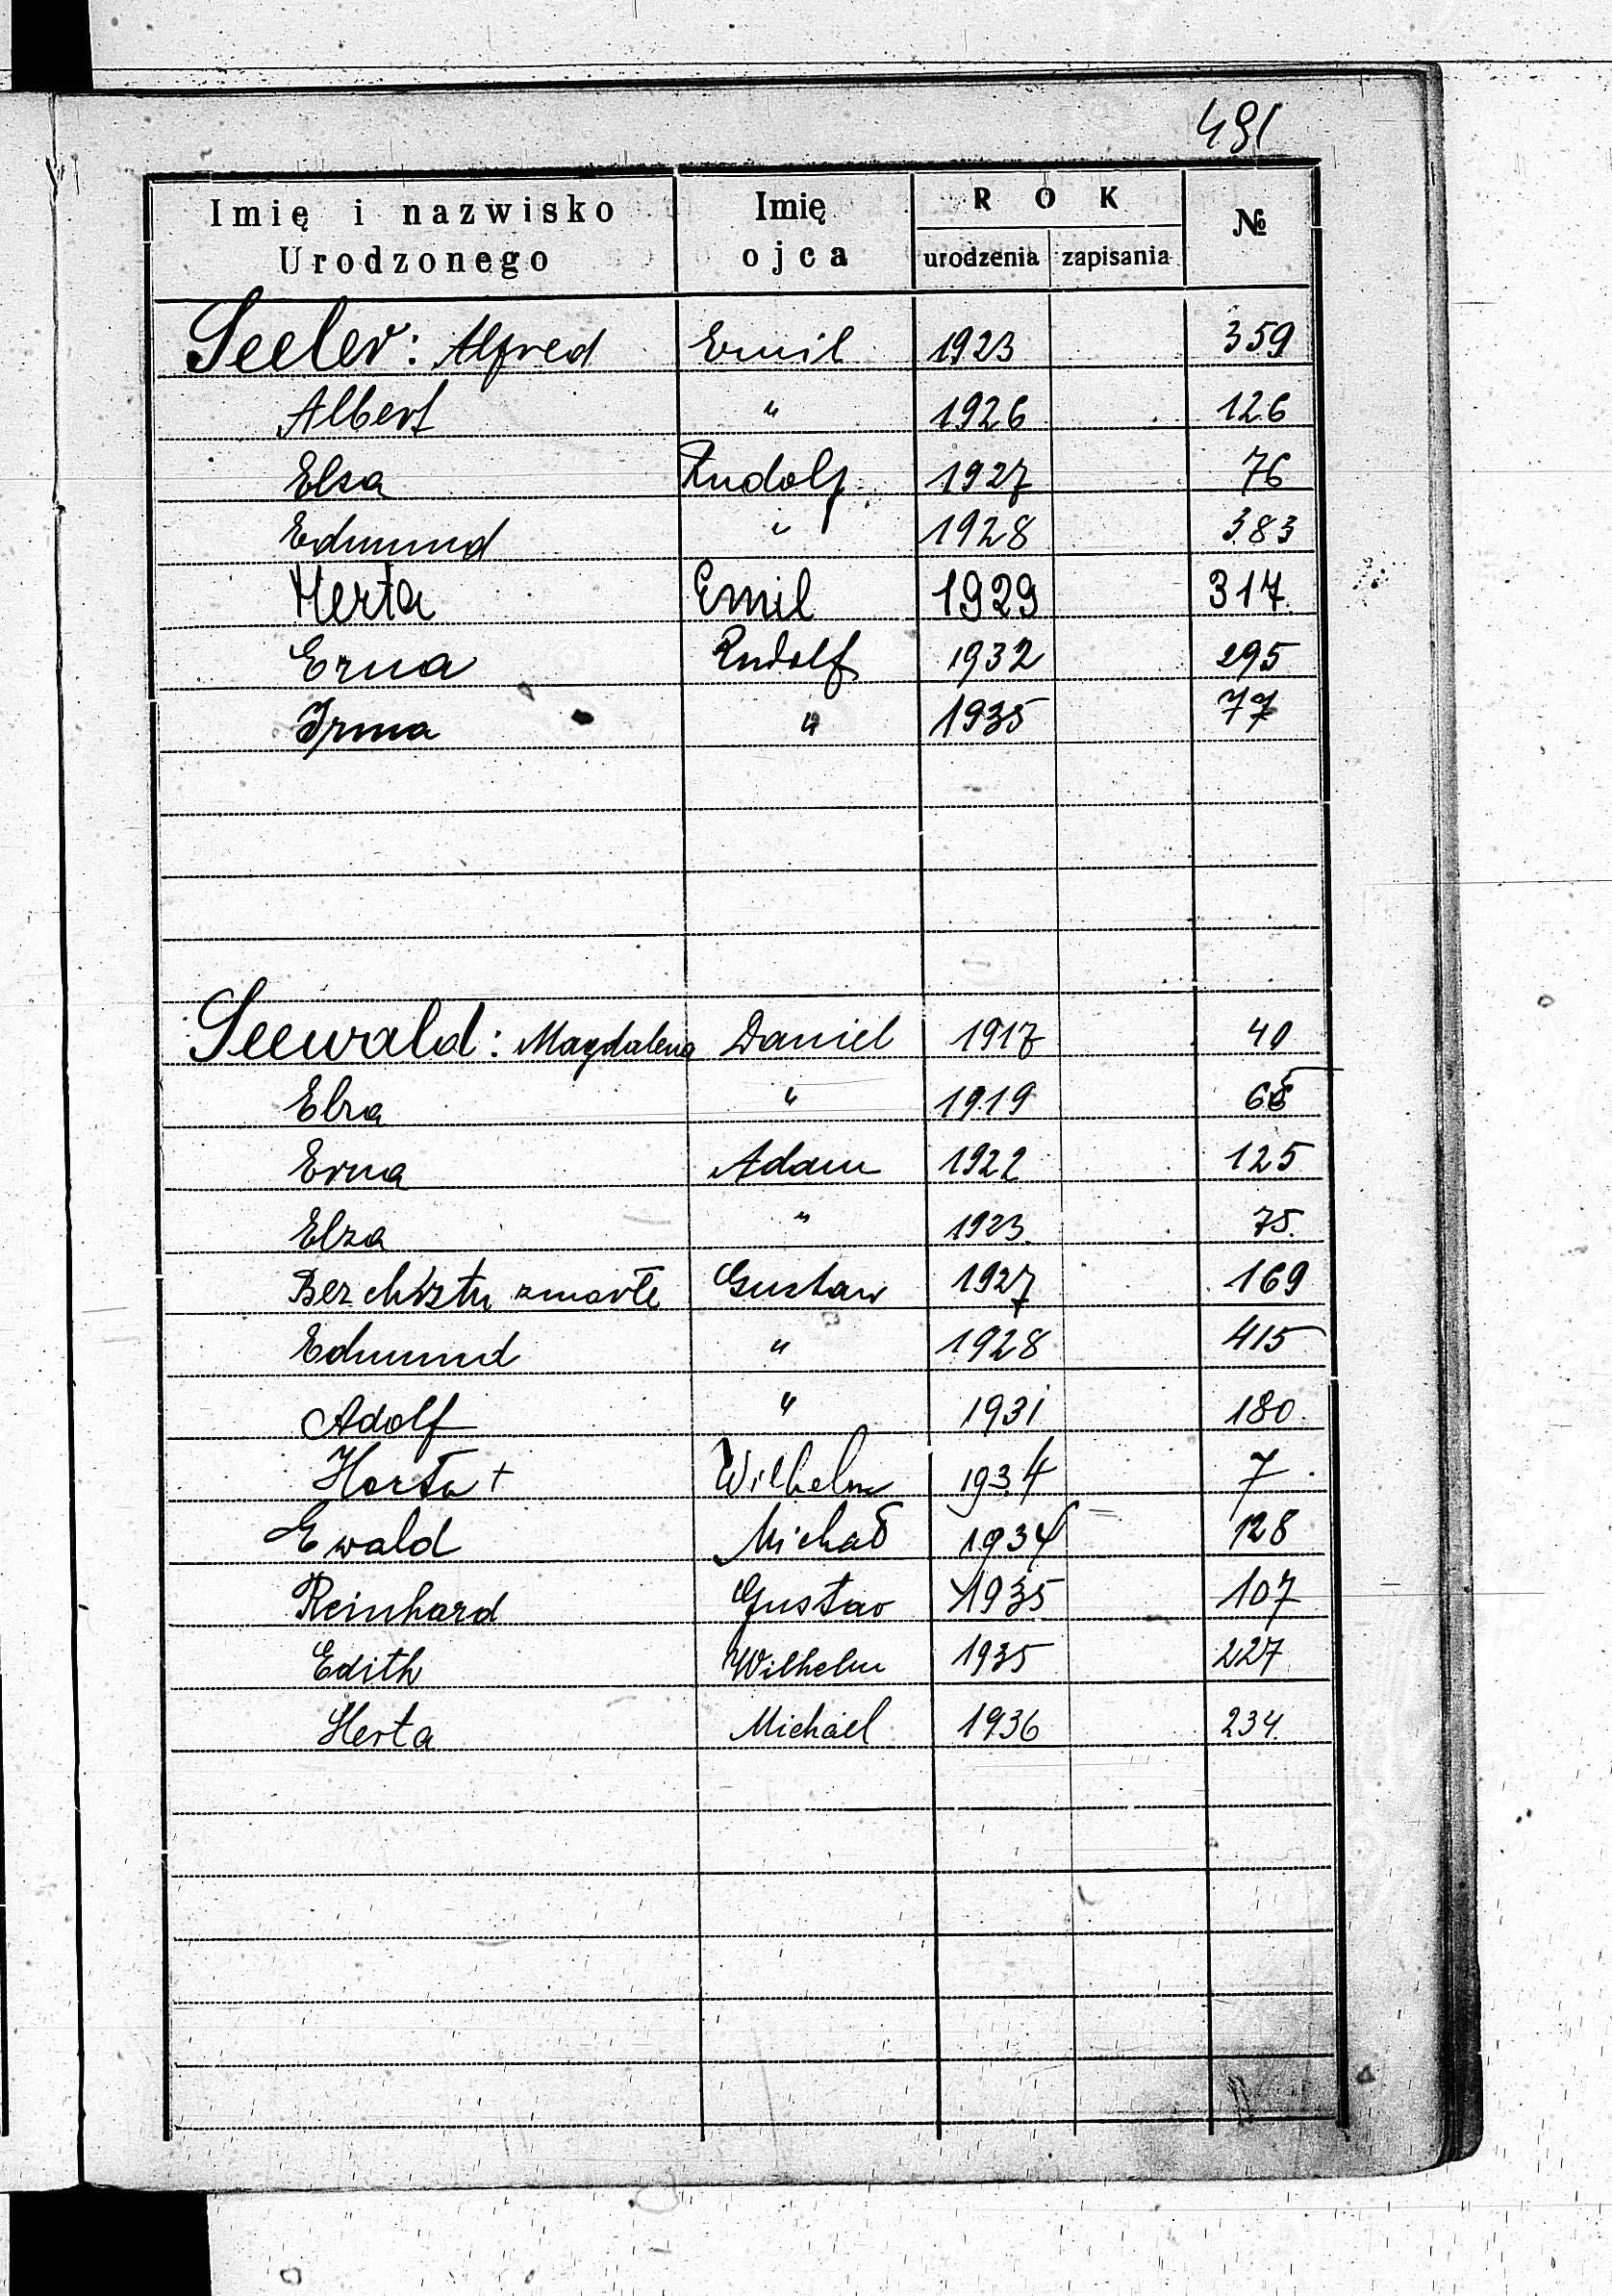 491
Imię i nazwisko Urodzonego Imię ojca ROK urodzenia zapisania №
Seeler: Alfred Emil 1923 359
Albert " 1926 126
Elsa Rudolf 1927 76
Edmund " 1928 383
Herta Emil 1929 317
Erna Rudolf 1932 295
Irma " 1935 77
Seewald: Magdalena Daniel 1917 40
Elza " 1919
Erna Adam 1922 125
Elza " 1923 75.
Bez chrztu zmarłe Gustaw 1927 169
Edmund " 1928 415
Adolf " 1931 180
Herta + Wilhelm 1934 7
Ewald Michał 1934 128
Reinhard Gustav 1935 107
Edith Wilhelm 1935 227
Herta Michael 1936 234